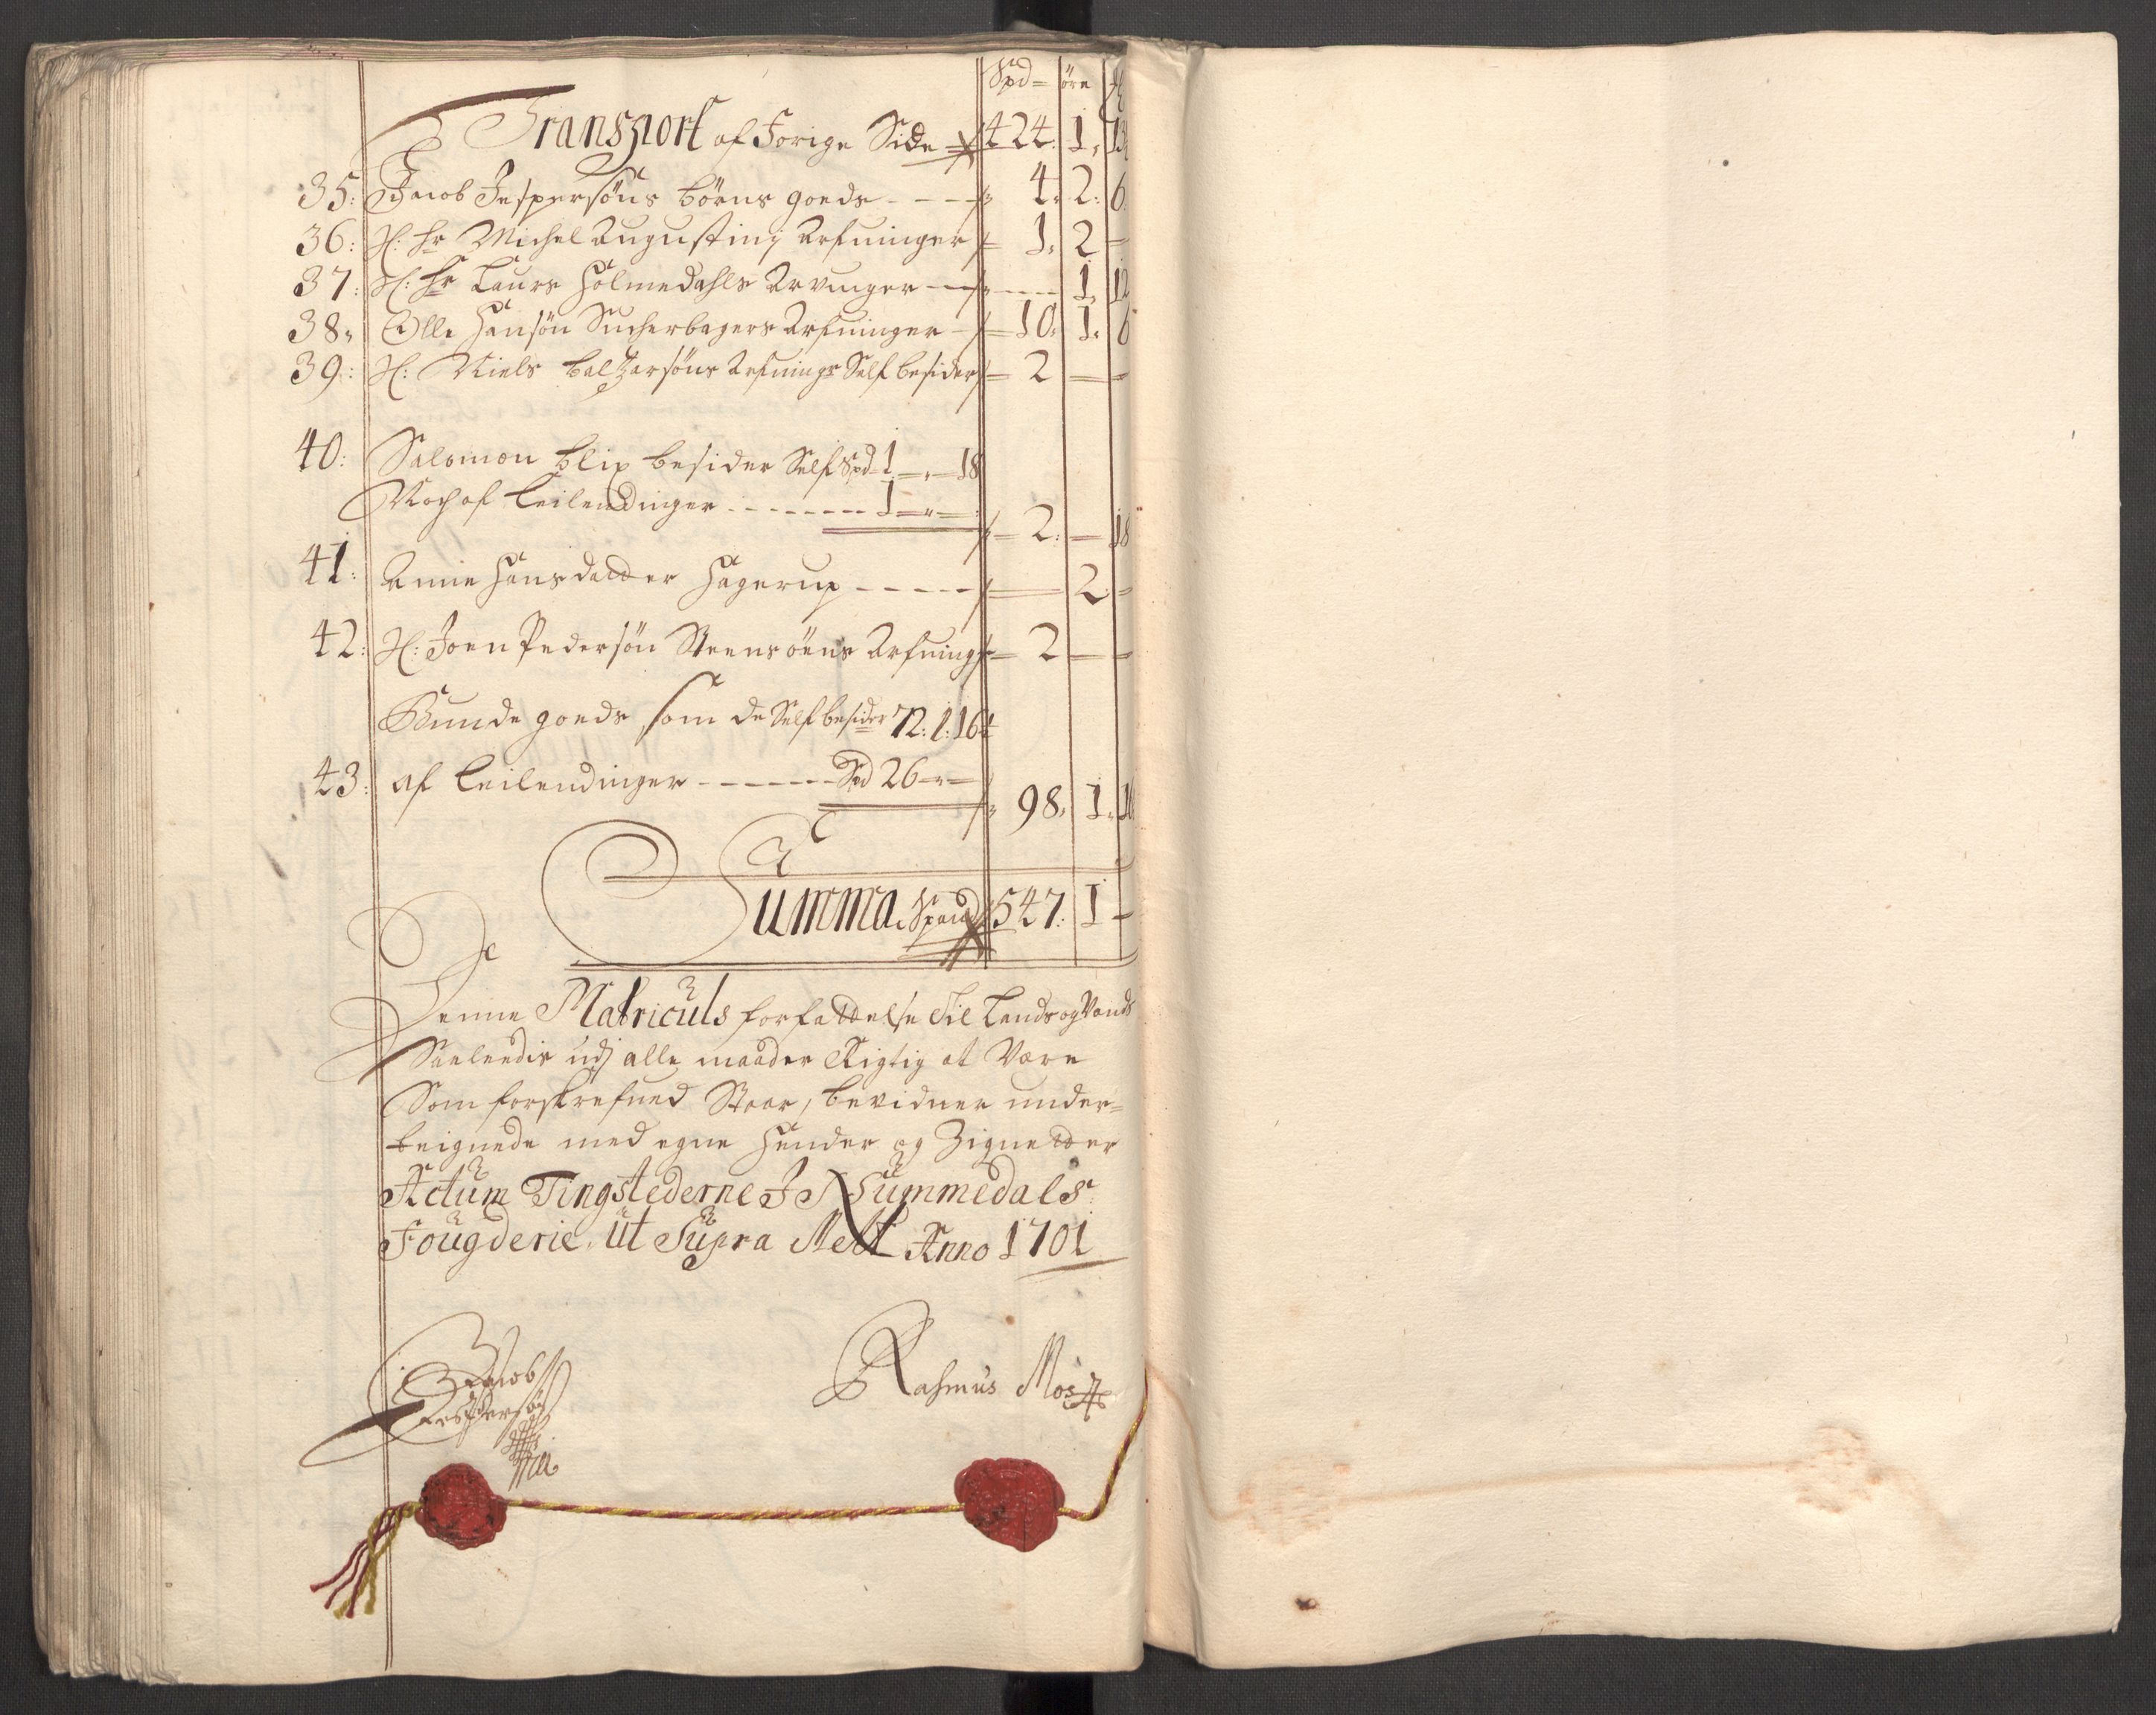 Spd= öre
Transport af Forige Side 424. 1. 13
35: Jacob Jespersöns börns goeds ---- 4. 2. 6
36: Sl: hr Michel Augustinj Arfuinger 1. 2 -
37: Sl: hr Laurs Holmedahls Arvinger --- 1. 12
38. Olle Hansön Sucherbagers Arfuinger - 10. 1. 6
39: Sl: Niels Baltzarsöns Arfuingr Self besider 2 - -
40: Salomon Blix besider Self Spd 1 - 18
Noch af Leilendinger -------- 1 - -
2. - 18
41: Anne Hansdatter Hagerup ----- 2 -
42: Sl: Joen Pedersön Steensöens Arfuingr 2 - -
Bunde goeds, som de Self besider 72. 1. 16
43: af Leilendinger ------ Spd 26 - -
98. 1. 16
Summa Spand 547. 1 -
Denne Matriculs forfattelse Til Lands og Vands
Saaledis udj alle maader Rigtig at Være
Som forskrefued Staar, bevidner under=
teignede med egne Hender og Zignetter
Actum Tingstederne J Nummedals
Fougderie, ut Supra Anno 1701
Jacob
Jespersön
Rasmus